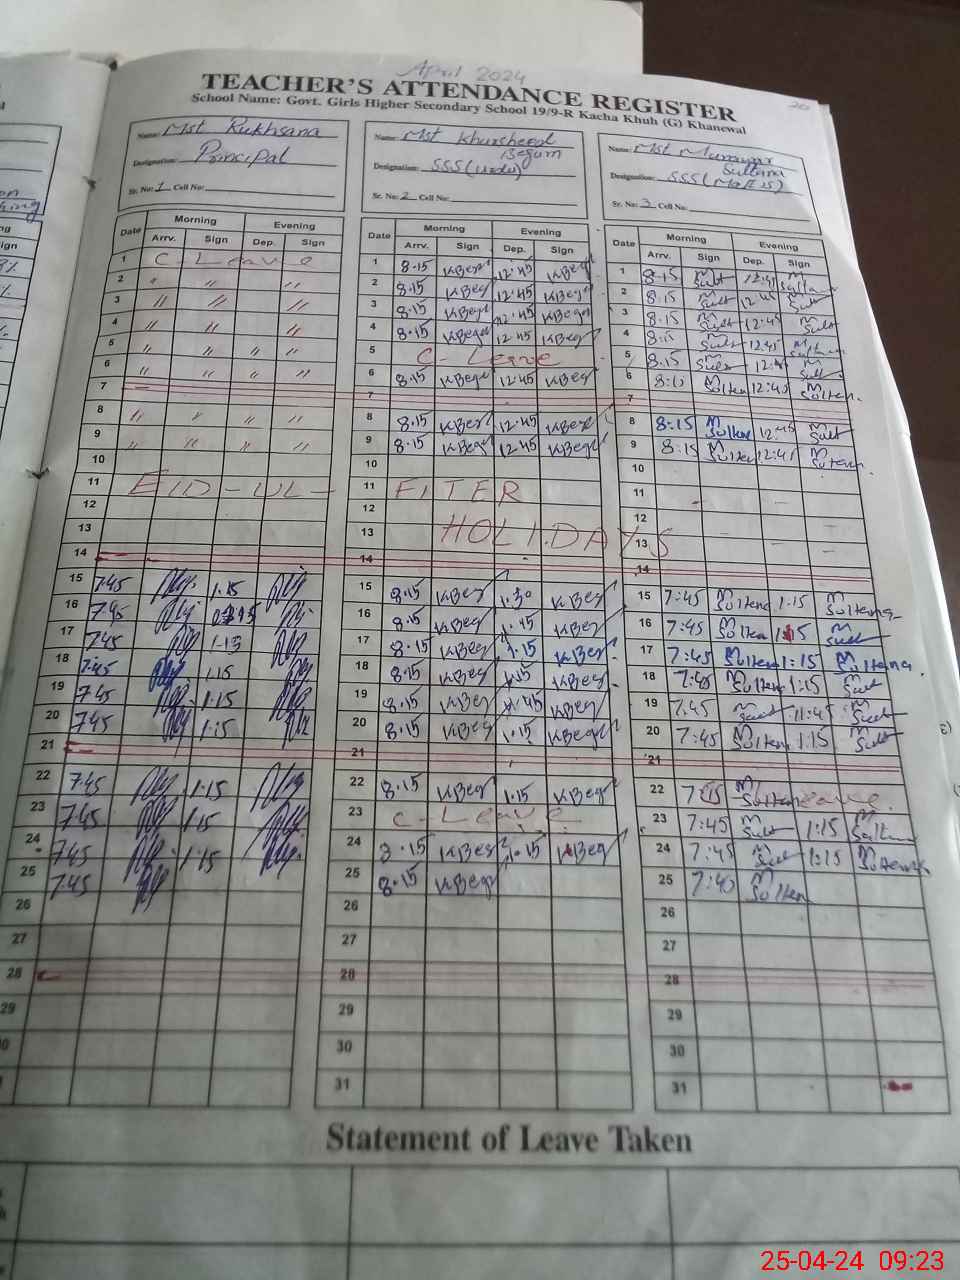 April 2024
TEACHER'S ATTENDANCE REGISTER
School Name: Govt. Girls Higher Secondary School 19/9-R Kacha Khuh (G) Khanewal
Name: Mst Rukhsana
Designation: Principal
Sr. No: 1 Cell No:
Name: Mst Khursheed Begum
Designation: SSS (Urdu)
Sr. No: 2 Cell No:
Name: Mst Sultana
Designation: SSS
Sr. No: 3 Cell No:
Date Morning Evening
Arrv. Sign Dep. Sign
1 C-Leave
2 " " "
3 " " "
4 " " "
5 " " " "
6 " " " "
7
8 " " " "
9 " " " "
10
11 EID-UL-
12
13
14
15 7.45 1.15
16 7.45
17 7.45 1.15
18 7.45 1.15
19 7.45 1.15
20 7.45 1.15
21
22 7.45 1.15
23 7.45 1.15
24 7.45 1.15
25 7.45
26
27
28
29
Date Morning Evening
Arrv. Sign Dep. Sign
1 8.15 KBeg 12.45 KBeg
2 8.15 KBeg 12.45 KBeg
3 8.15 KBeg 12.45 KBeg
4 8.15 KBeg 12.45 KBeg
5 C-Leave
6 8.15 KBeg 12.45 KBeg
7
8 8.15 KBeg 12.45 KBeg
9 8.15 KBeg 12.45 KBeg
10
11 FITER
12
13 HOLIDAYS
14
15 8.15 KBeg 1.30 KBeg
16 8.15 KBeg 1.15 KBeg
17 8.15 KBeg 1.15 KBeg
18 8.15 KBeg 1.15 KBeg
19 8.15 KBeg 11.45 KBeg
20 8.15 KBeg 1.15 KBeg
21
22 8.15 KBeg 1.15 KBeg
23 C-Leave
24 8.15 KBeg 1.15 KBeg
25 8.15 KBeg
26
27
28
29
30
31
Date Morning Evening
Arrv. Sign Dep. Sign
1 8:15 M Sult 12:45 M Sultana
2 8:15 M Sult 12:45 M Sult
3 8:15 M Sult 12:45 M Sult
4 8:15 Sult 12:45
5 8:15 12:45 M Sult
6 8:15 M Sultan 12:45 M Sultan
7
8 8:15 M Sultan 12:45 M Sult
9 8:15 M Sultan 12:45 M Sultan
10
11
12
13
14
15 7:45 M Sultana 1:15 M Sultana
16 7:45 M Sultan 1:15 M Sult
17 7:45 M Sultan 1:15 M Sultana
18 7:45 M Sultan 1:15 M Sult
19 7:45 M Sult 11:45 M Sult
20 7:45 M Sultan 1:15 M Sult
21
22 M Sultan Leave
23 7:45 M Sult 1:15 M Sultan
24 7:45 M Sult 1:15 M Sultana
25 7:40 M Sultan
26
27
28
29
30
31
Statement of Leave Taken
25-04-24 09:23